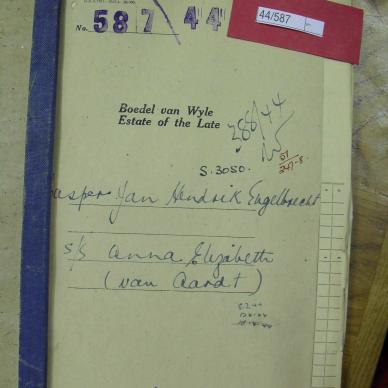 No. 587/44
44/587
Boedel van Wyle
Estate of the Late
288/44
S.3050.
Jasper Jan Hendrik Engelbrecht
s/s Anna Elizabeth
(van Aardt)